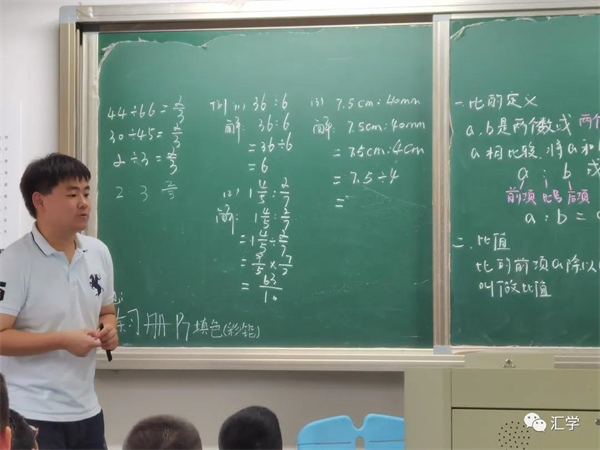 44÷66=2/3
30÷45=2/3
2÷3=2/3
2:3 2/3
例(1) 36:6
解: 36:6
=36÷6
=6
(2) 1 4/5:2/7
解: 1 4/5:2/7
=1 4/5÷2/7
=9/5×7/2
=63/10
(3) 7.5cm:40mm
解: 7.5cm:40mm
=7.5cm:4cm
=7.5÷4
=
填色(彩铅)
一.比的定义
a.b是两个数或 两个
a相比较.将a和b
a : b 或
前项 比号 后项
a:b=
二.比值
比的前项a除以
叫做比值
汇学